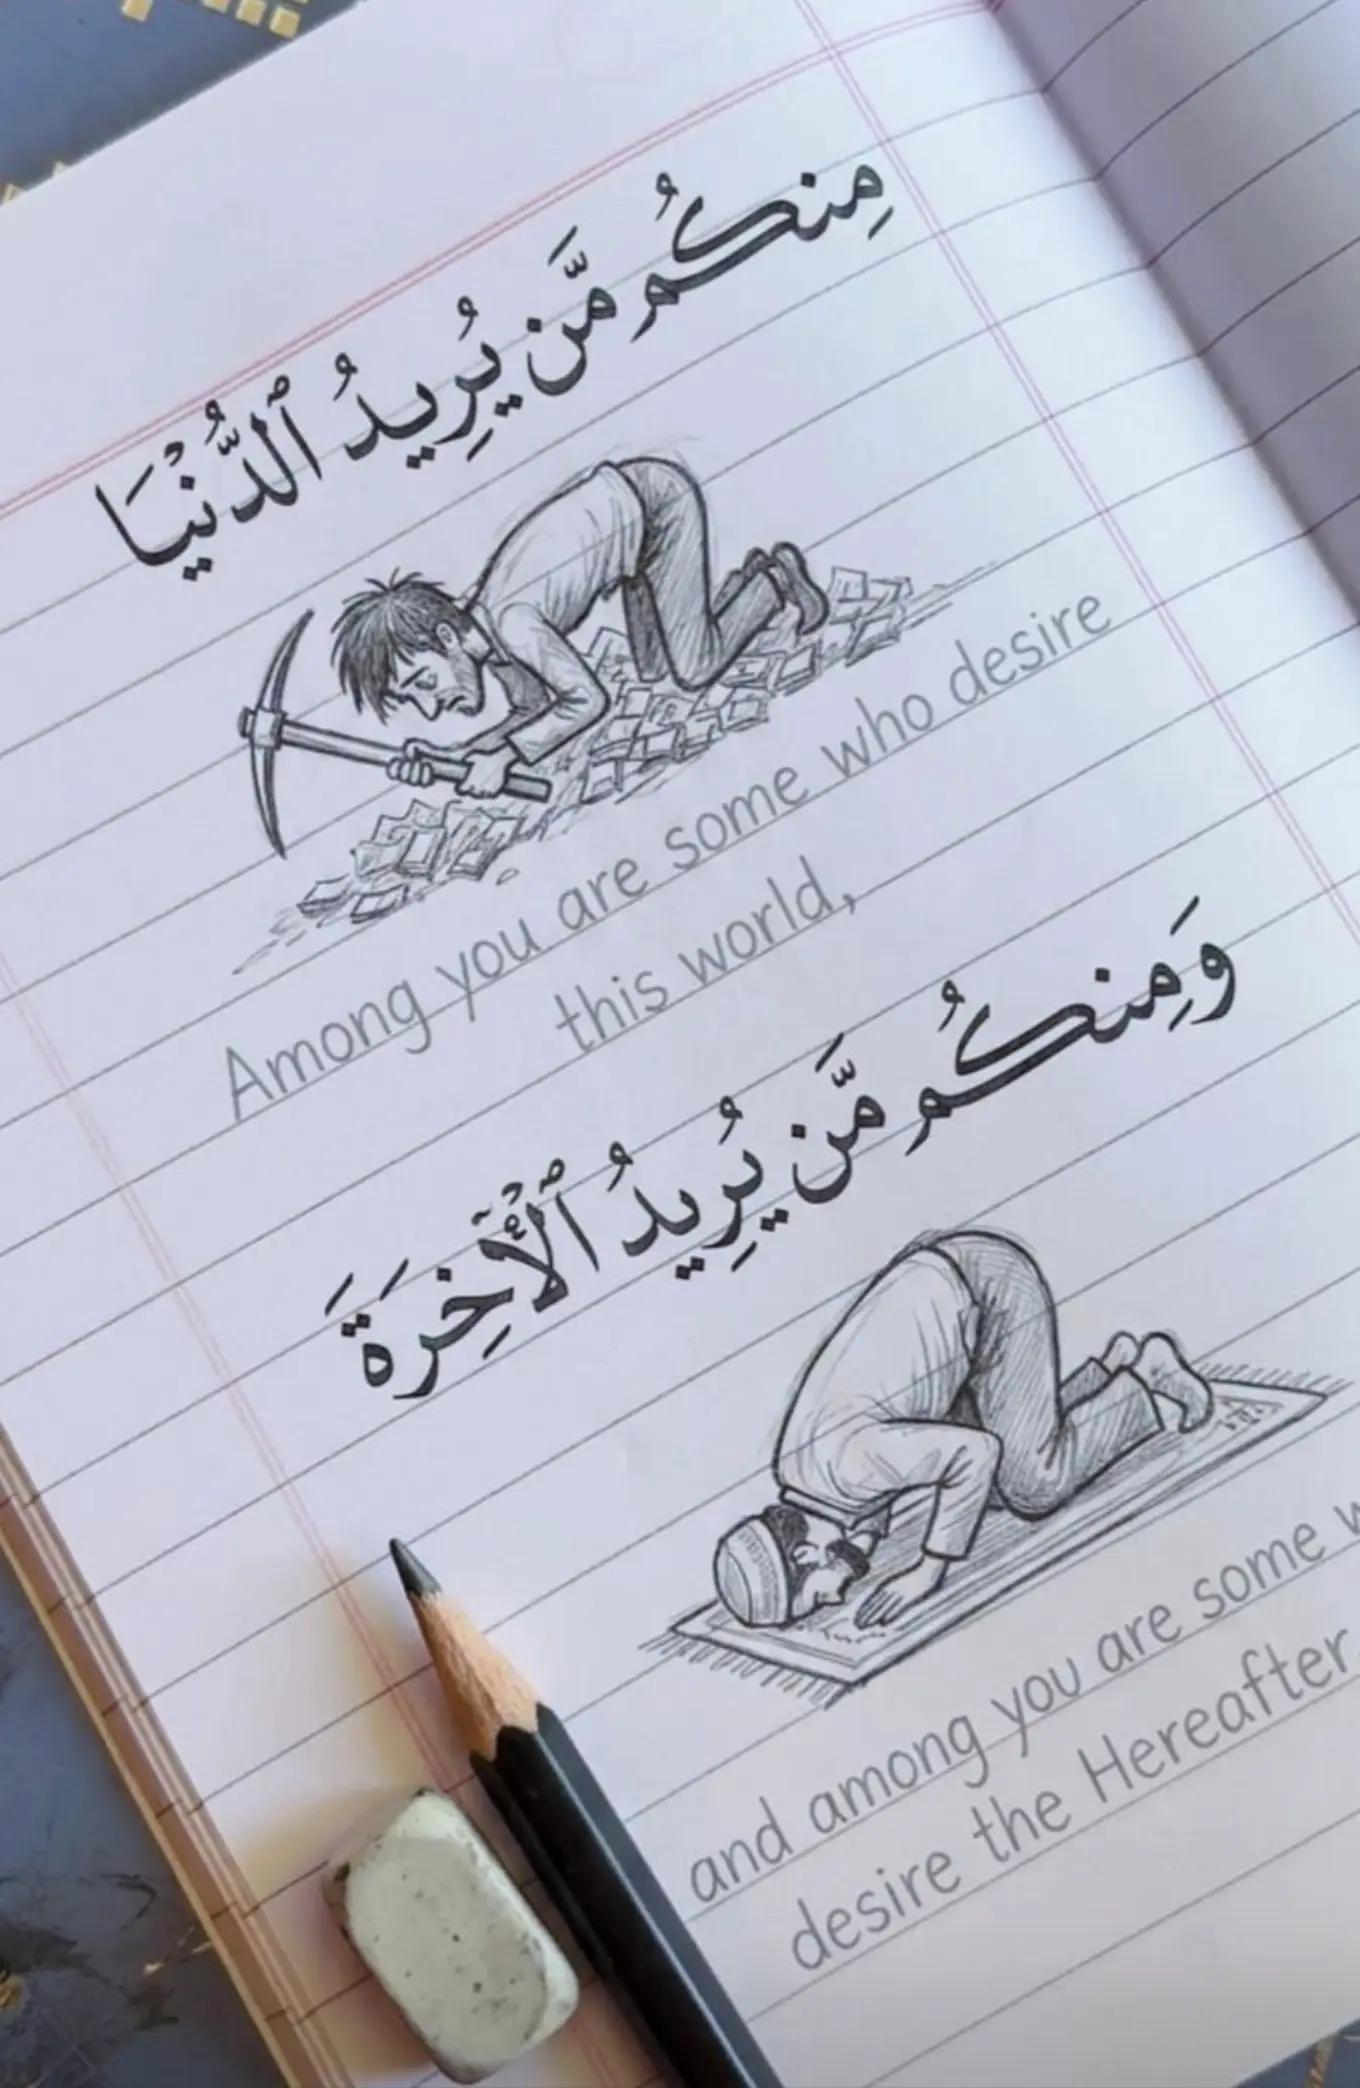 مِنكُم مَّن يُرِيدُ ٱلدُّنْيَا
Among you are some who desire
this world,
وَمِنكُم مَّن يُرِيدُ ٱلْأَخِرَةَ
and among you are some
desire the Hereafter